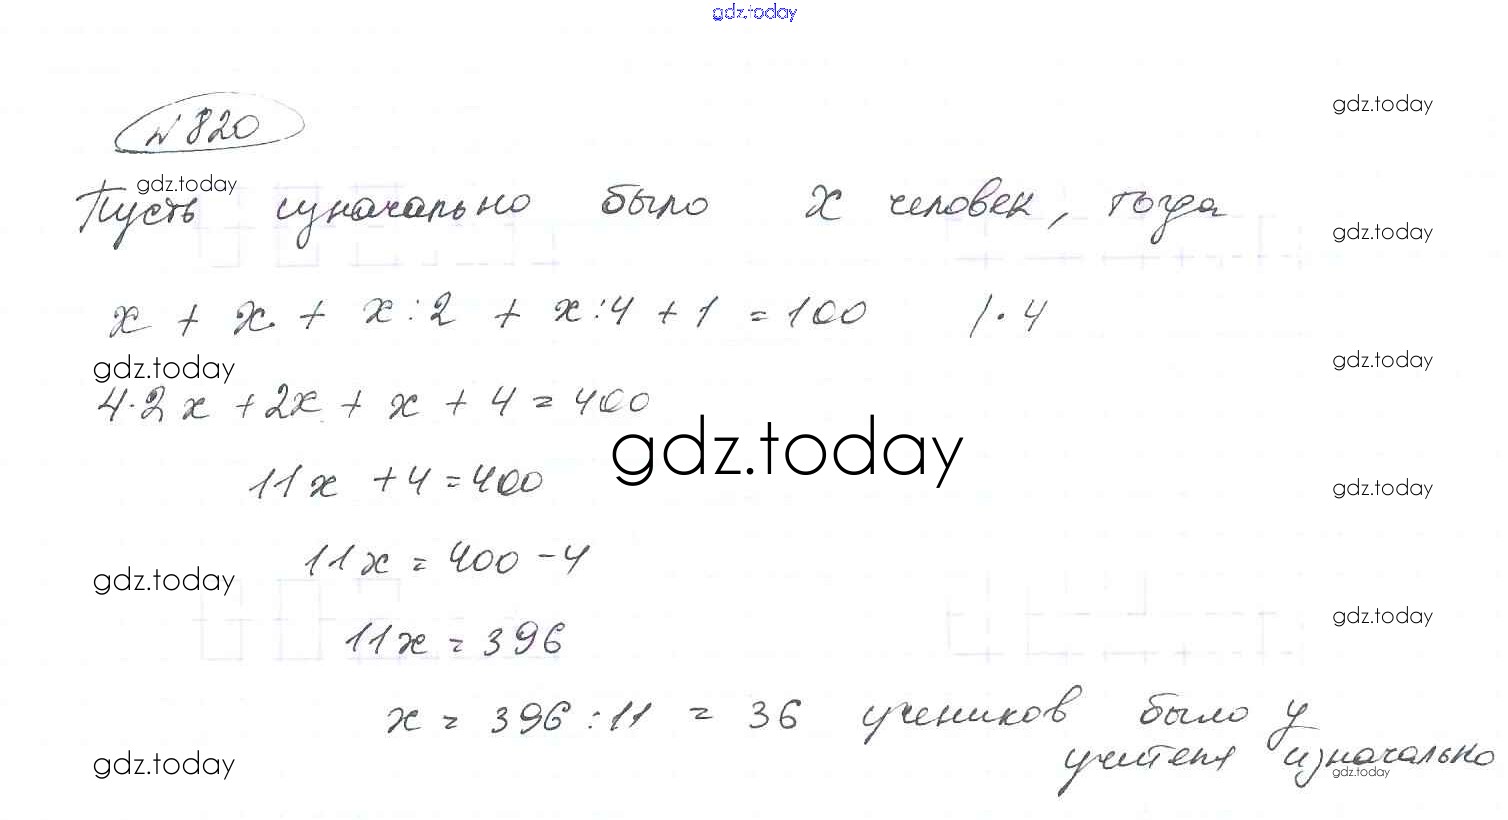 gdz.today
№ 820
gdz.today
gdz.today
Пусть изначально было x человек, тогда
gdz.today
x + x + x : 2 + x : 4 + 1 = 100 | · 4
gdz.today
gdz.today
4 · 2x + 2x + x + 4 = 400
gdz.today
11x + 4 = 400
gdz.today
11x = 400 - 4
gdz.today
gdz.today
11x = 396
x = 396 : 11 = 36 учеников было у
учителя изначально
gdz.today
gdz.today